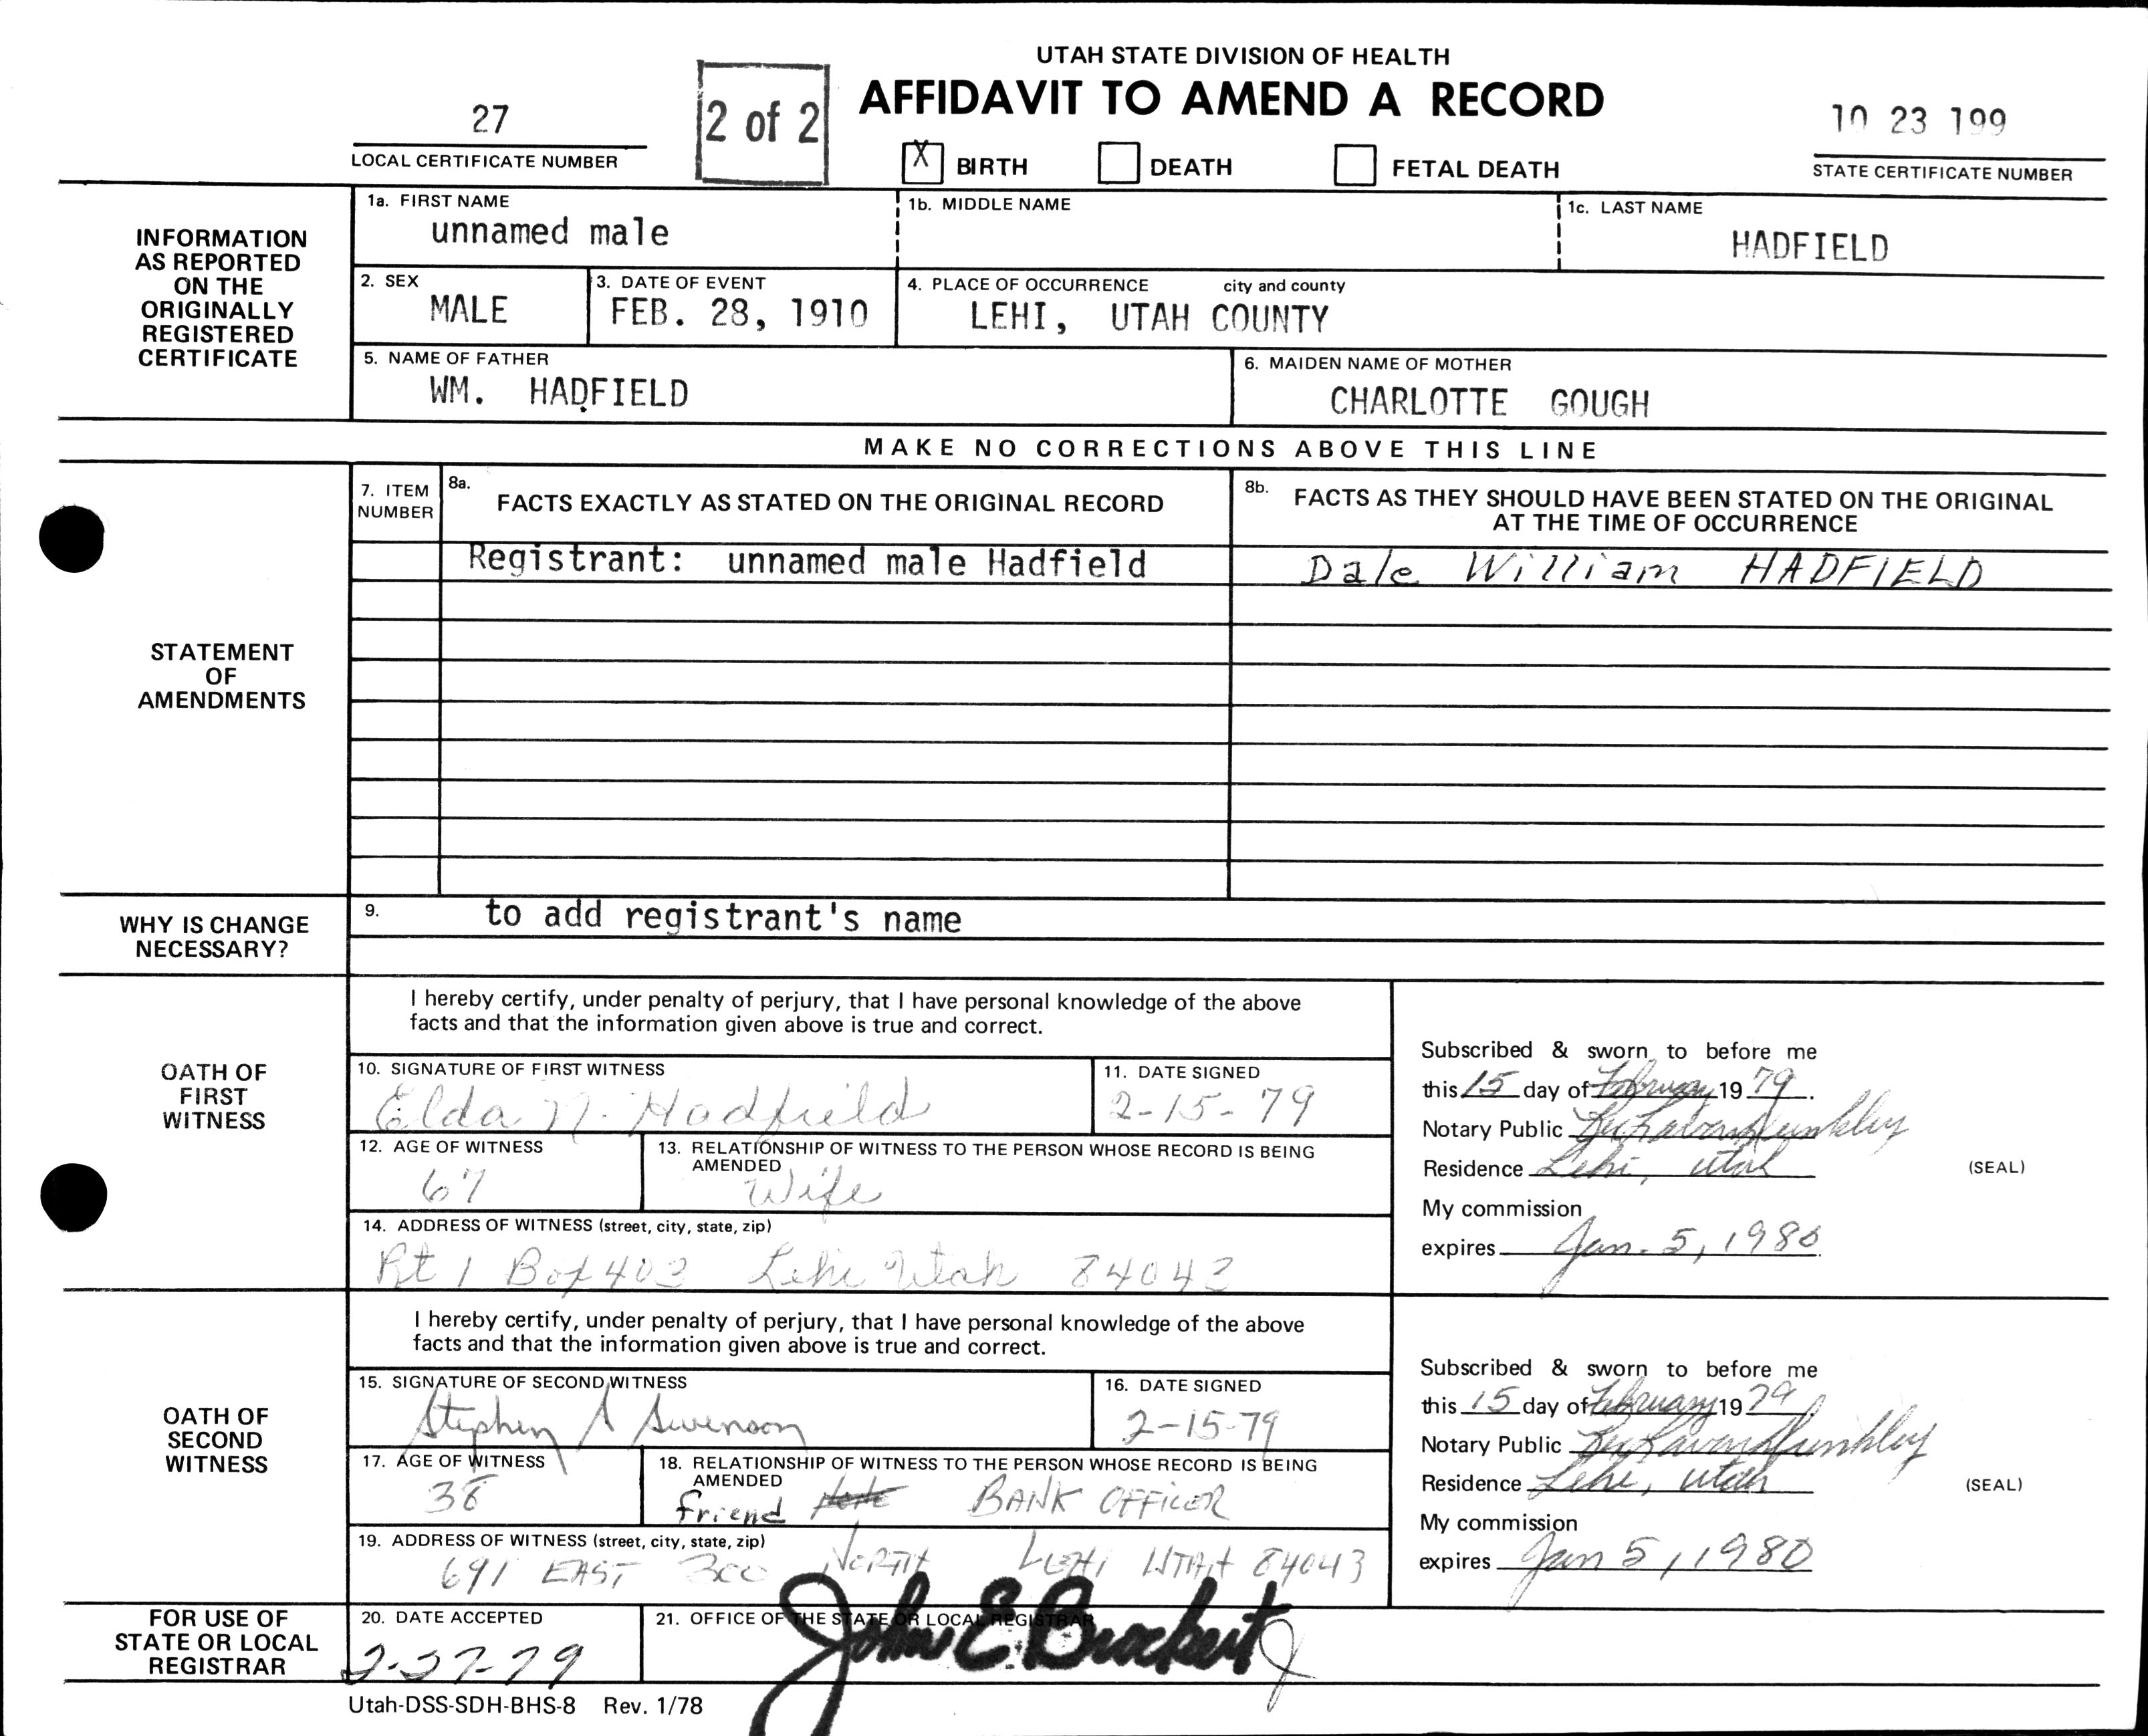 UTAH STATE DIVISION OF HEALTH
AFFIDAVIT TO AMEND A RECORD
27
LOCAL CERTIFICATE NUMBER
2 of 2
X BIRTH DEATH FETAL DEATH
10 23 199
STATE CERTIFICATE NUMBER
INFORMATION
AS REPORTED
ON THE
ORIGINALLY
REGISTERED
CERTIFICATE
1a. FIRST NAME
unnamed male
1b. MIDDLE NAME
1c. LAST NAME
HADFIELD
2. SEX
MALE
3. DATE OF EVENT
FEB. 28, 1910
4. PLACE OF OCCURRENCE city and county
LEHI, UTAH COUNTY
5. NAME OF FATHER
WM. HADFIELD
6. MAIDEN NAME OF MOTHER
CHARLOTTE GOUGH
MAKE NO CORRECTIONS ABOVE THIS LINE
STATEMENT
OF
AMENDMENTS
7. ITEM
NUMBER
8a.
FACTS EXACTLY AS STATED ON THE ORIGINAL RECORD
8b. FACTS AS THEY SHOULD HAVE BEEN STATED ON THE ORIGINAL
AT THE TIME OF OCCURRENCE
Registrant: unnamed male Hadfield
Dale William HADFIELD
WHY IS CHANGE
NECESSARY?
9. to add registrant's name
OATH OF
FIRST
WITNESS
I hereby certify, under penalty of perjury, that I have personal knowledge of the above
facts and that the information given above is true and correct.
10. SIGNATURE OF FIRST WITNESS
Elda N. Hadfield
11. DATE SIGNED
2-15-79
12. AGE OF WITNESS
67
13. RELATIONSHIP OF WITNESS TO THE PERSON WHOSE RECORD IS BEING
AMENDED
Wife
14. ADDRESS OF WITNESS (street, city, state, zip)
Rt 1 Box 403 Lehi Utah 84043
Subscribed & sworn to before me
this 15 day of February 19 79.
Notary Public
Residence Lehi, Utah
(SEAL)
My commission
expires Jan. 5, 1980
OATH OF
SECOND
WITNESS
I hereby certify, under penalty of perjury, that I have personal knowledge of the above
facts and that the information given above is true and correct.
15. SIGNATURE OF SECOND WITNESS
Stephen A Swenson
16. DATE SIGNED
2-15-79
17. AGE OF WITNESS
38
18. RELATIONSHIP OF WITNESS TO THE PERSON WHOSE RECORD IS BEING
AMENDED
friend BANK OFFICER
19. ADDRESS OF WITNESS (street, city, state, zip)
691 EAST 300 NORTH LEHI UTAH 84043
Subscribed & sworn to before me
this 15 day of February 19 79.
Notary Public
Residence Lehi, Utah
(SEAL)
My commission
expires Jan 5, 1980
FOR USE OF
STATE OR LOCAL
REGISTRAR
20. DATE ACCEPTED
2-27-79
21. OFFICE OF THE STATE OR LOCAL REGISTRAR
John E Brockert
Utah-DSS-SDH-BHS-8 Rev. 1/78